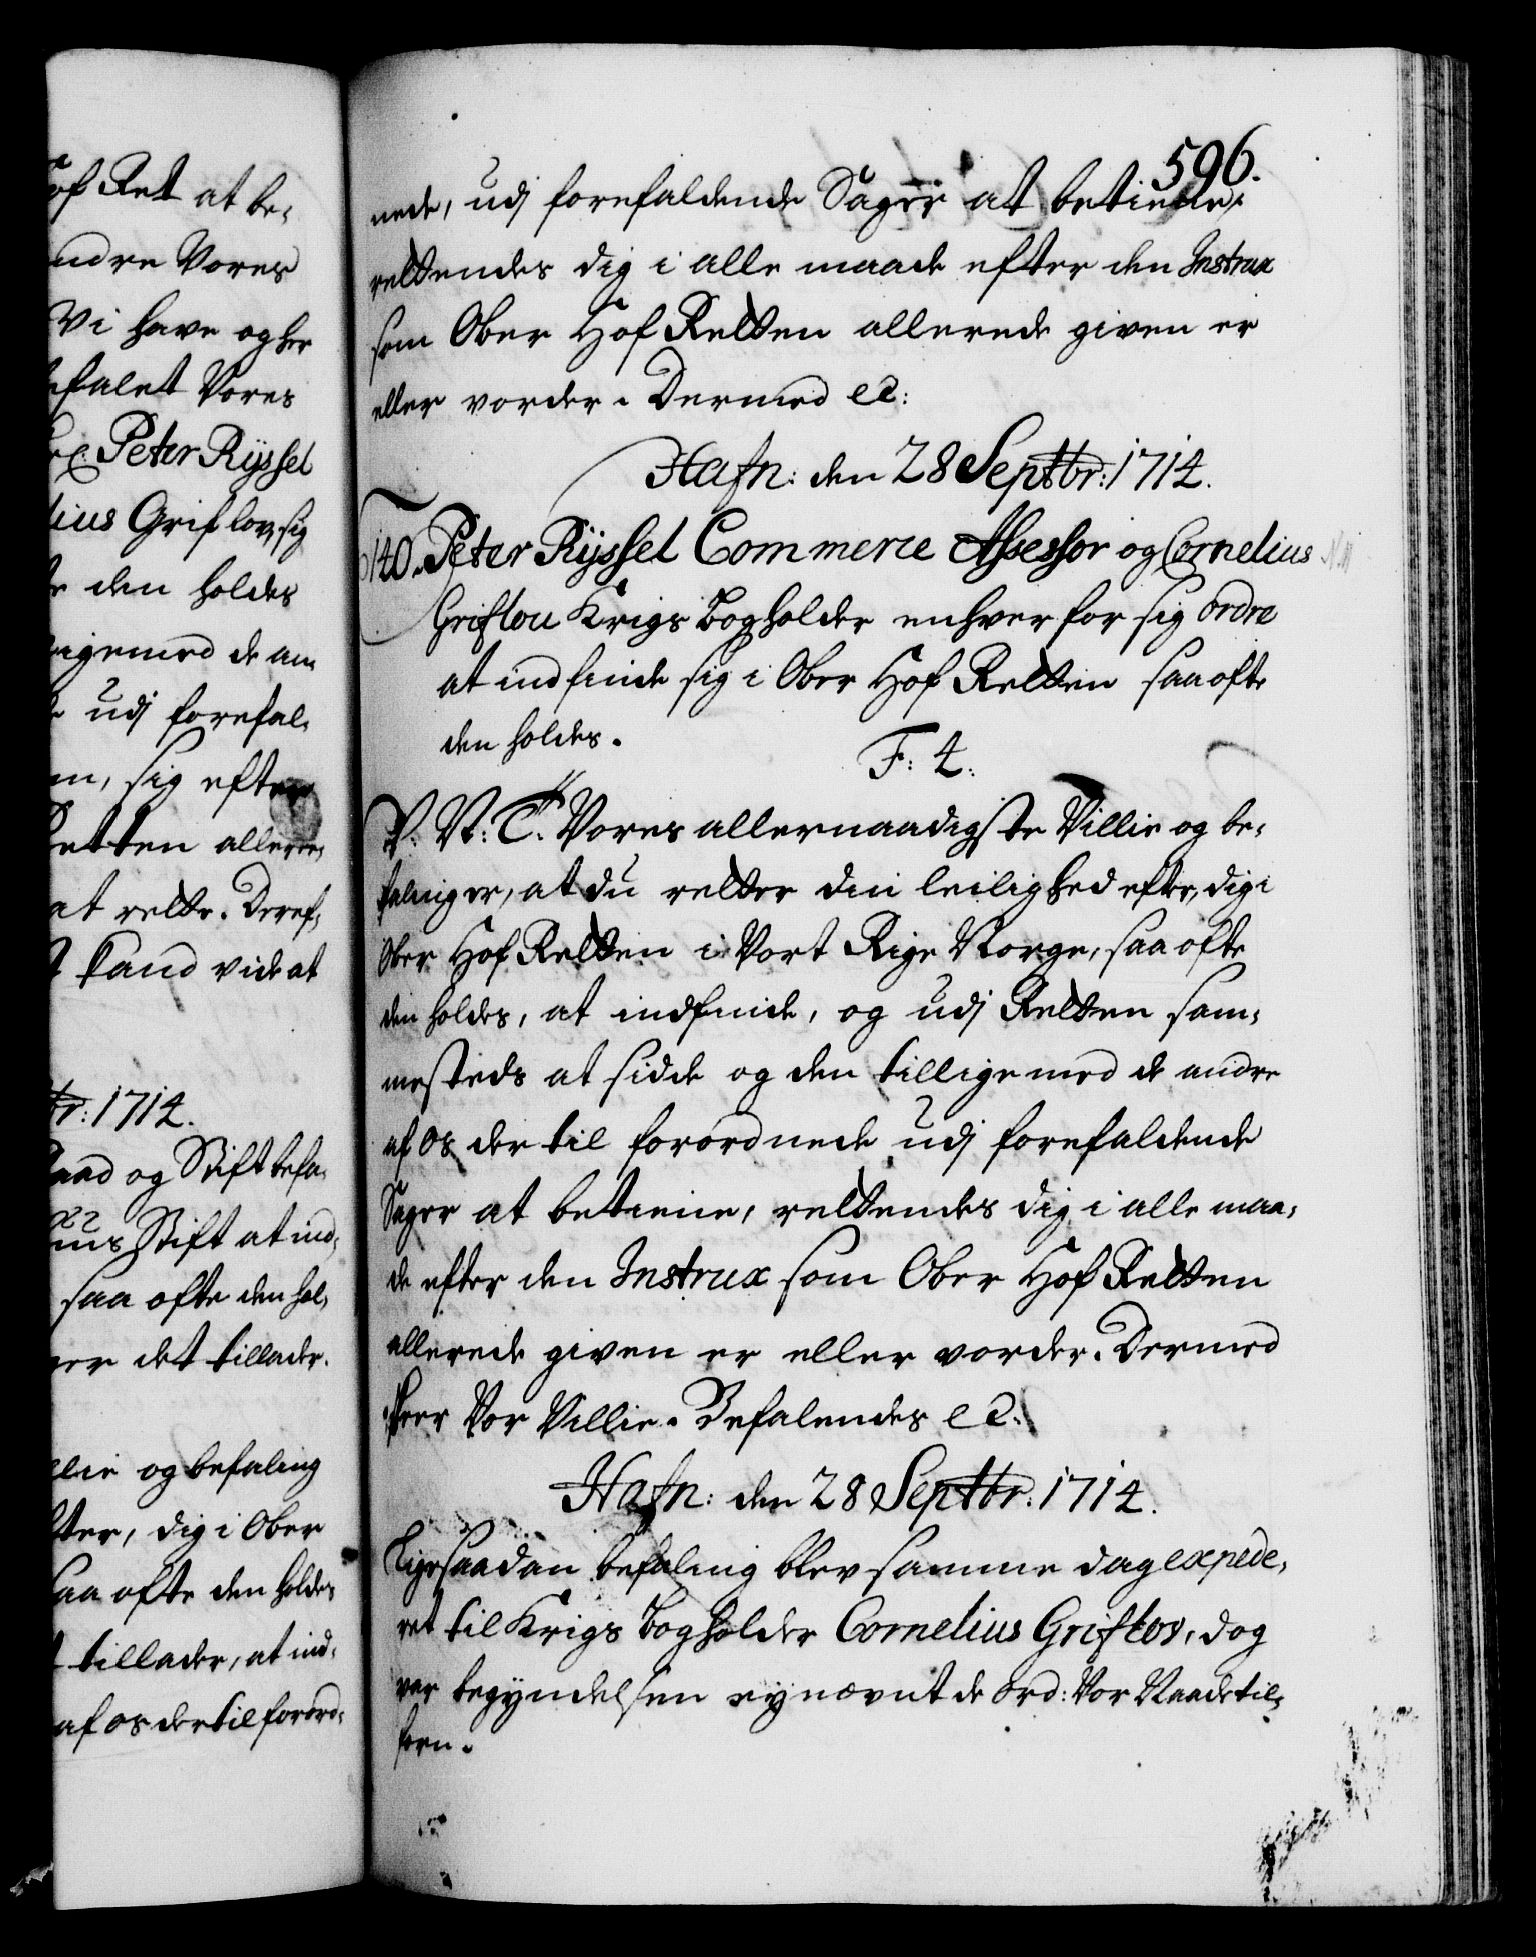 of Ret at be,
andre Vores
Vi have og her
befalet Vores
Peter Rÿssel
lius Griflov, sig
den holdes
ligemed de an
udj forefal,
en, sig efter
Retten allere,
at rette. Deref,
t kand vide at
br: 1714.
Raad og Stiftbefa,
huus Stift at ind,
saa ofte den hol,
det tillader.
llie og befaling
tter, dig i Ober
saa ofte den holdes
t tillader, at ind,
af os dertil forord,
596.
nede, udj forefaldende Sager at betiene,
rettendes dig i alle maade efter den Instrux
som Ober Hof Retten allerede given er
eller vorder. Dermed ec:
Hafn: den 28 Septbr: 1714.
140. Peter Rÿssel Commerce Assessor og Cornelius
Griflou Krigs Bogholder enhver for sig ordre
at indfinde sig i Ober Hof Retten saa ofte
den holdes.
F: 4:
V. N: T. Vores allernaadigste Villie og be,
faling er, at du retter din leilighed efter, dig i
Ober Hof Retten i Vort Rige Norge, saa ofte
den holdes, at indfinde, og udj Retten sam,
mesteds at sidde og den tilligemed de andre
af os der til forordnede udj forefaldende
Sager at betiene, rettendes dig i alle maa,
de efter den Instrux som Ober Hof Retten
allerede given er eller vorder. Dermed
skeer Vor Villie. Befalendes ec:
Hafn: den 28 Septbr: 1714.
Ligesaadan befaling blev samme dag expede,
ret til Krigs Bogholder Cornelius Griflov, dog
var begyndelsen ey nævnt de ord: Vor Naade til,
forn.